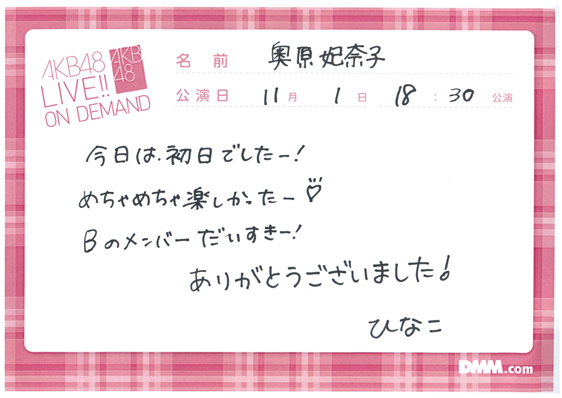 AKB48
LIVE!!
ON DEMAND
AKB
48
名前 奥原妃奈子
公演日 11月 1日 18:30 公演
今日は、初日でしたー!
めちゃめちゃ楽しかったー♡
Bのメンバーだいすきー!
ありがとうございました!
ひなこ
DMM.com